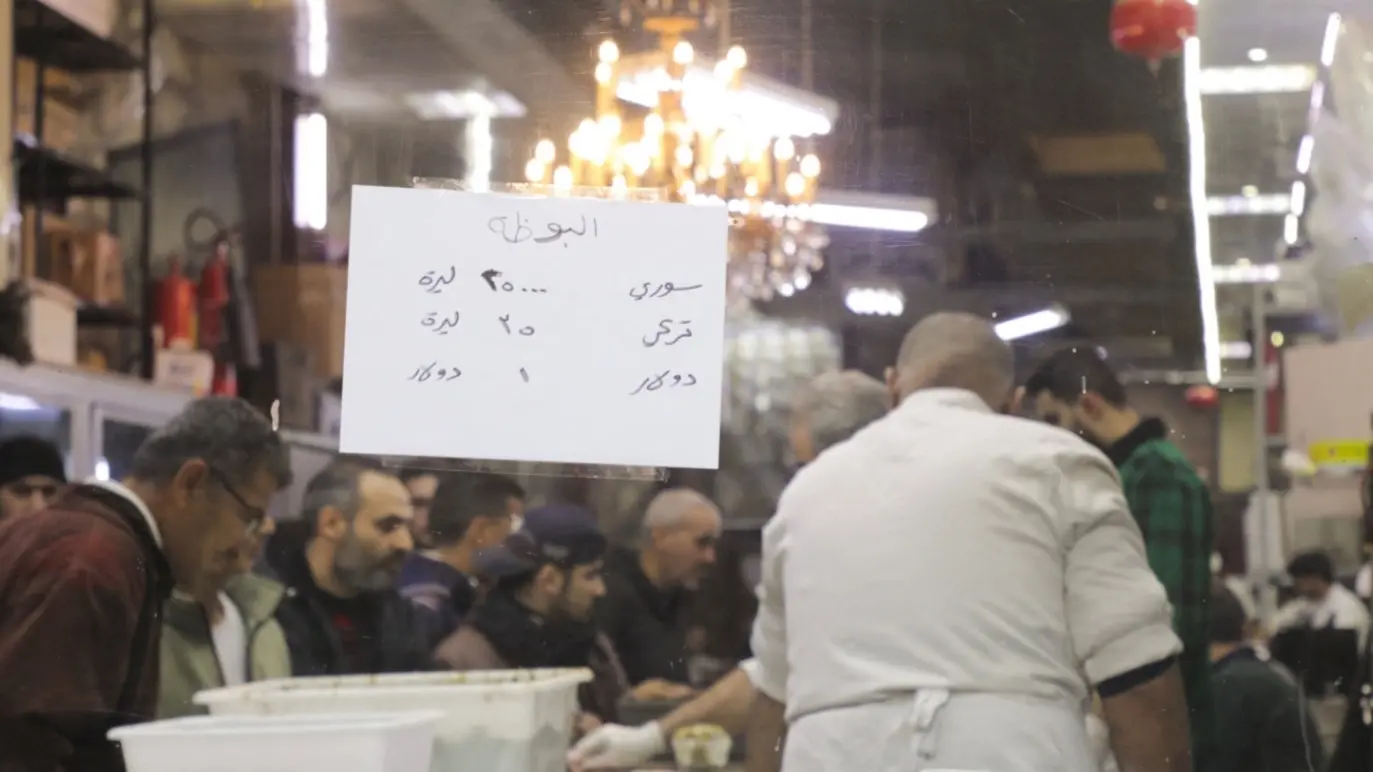 البوظة
سوري ليرة
تركي ٣٥ ليرة
دولار ١ دولار